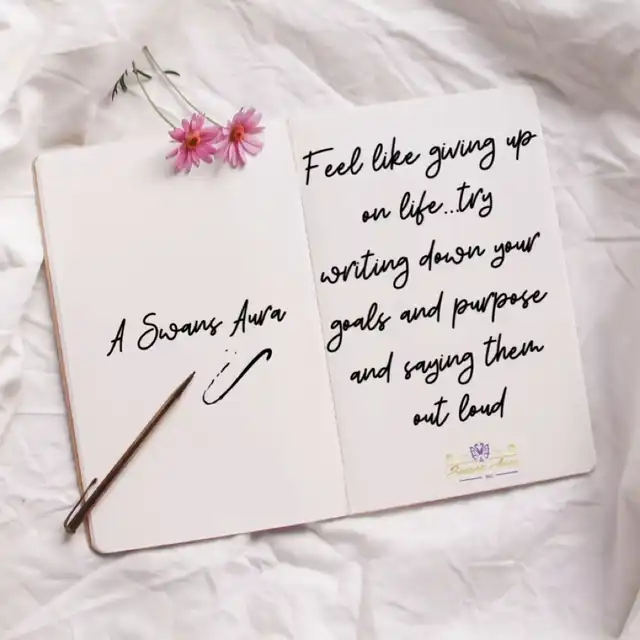 A Swans Aura
Feel like giving up
on life...try
writing down your
goals and purpose
and saying them
out loud